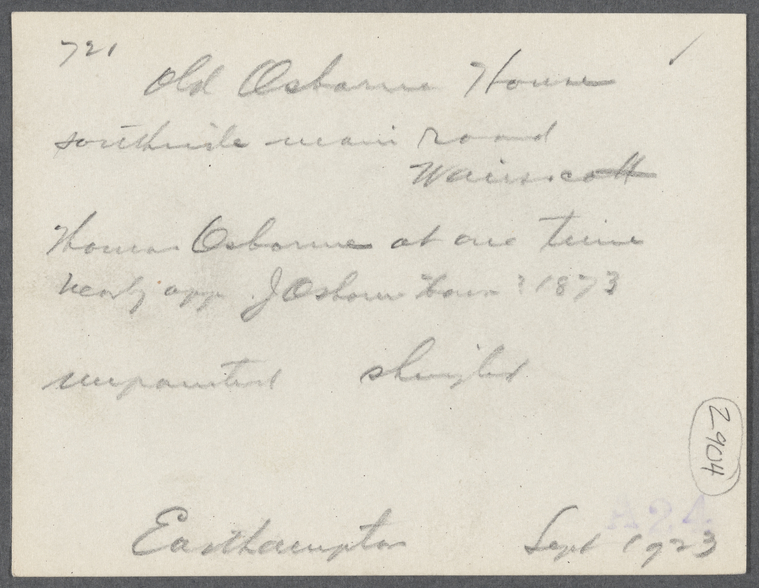 721
Old Osborne House
southside main road
Wainscott
Thomas Osborne at one time
nearly opp. J Osborn House? 1873
unpainted shingled
2904
Easthampton Sept 1923